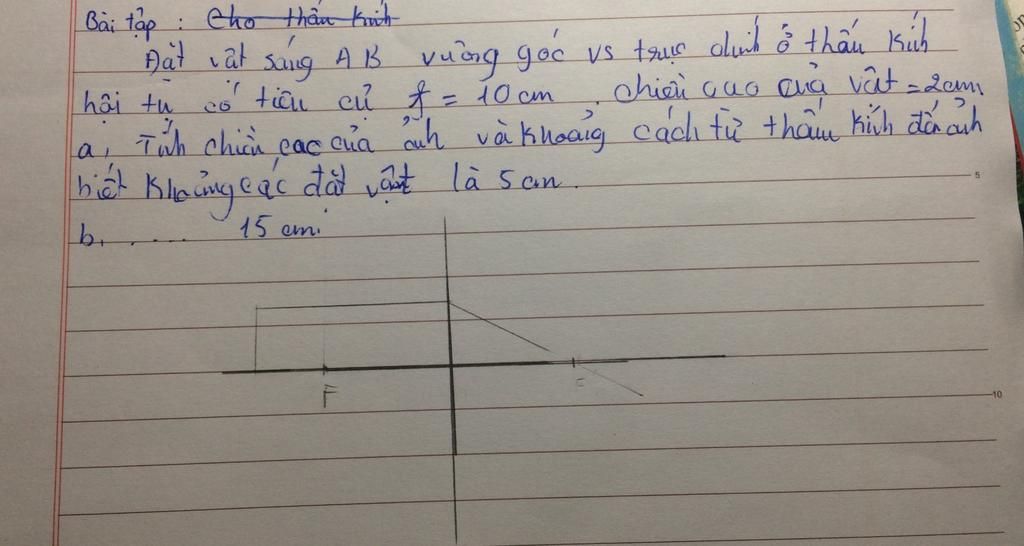 Bài tập : Cho thấu kính
Đặt vật sáng AB vuông góc vs trục chính ở thấu kính
hội tụ có tiêu cự f = 10 cm . chiều cao của vật = 2cm.
a, Tính chiều cao của ảnh và khoảng cách từ thấu kính đến ảnh
biết khoảng các đặt vật là 5 cm.
b, . .... 15 cm.
F
F
5
10